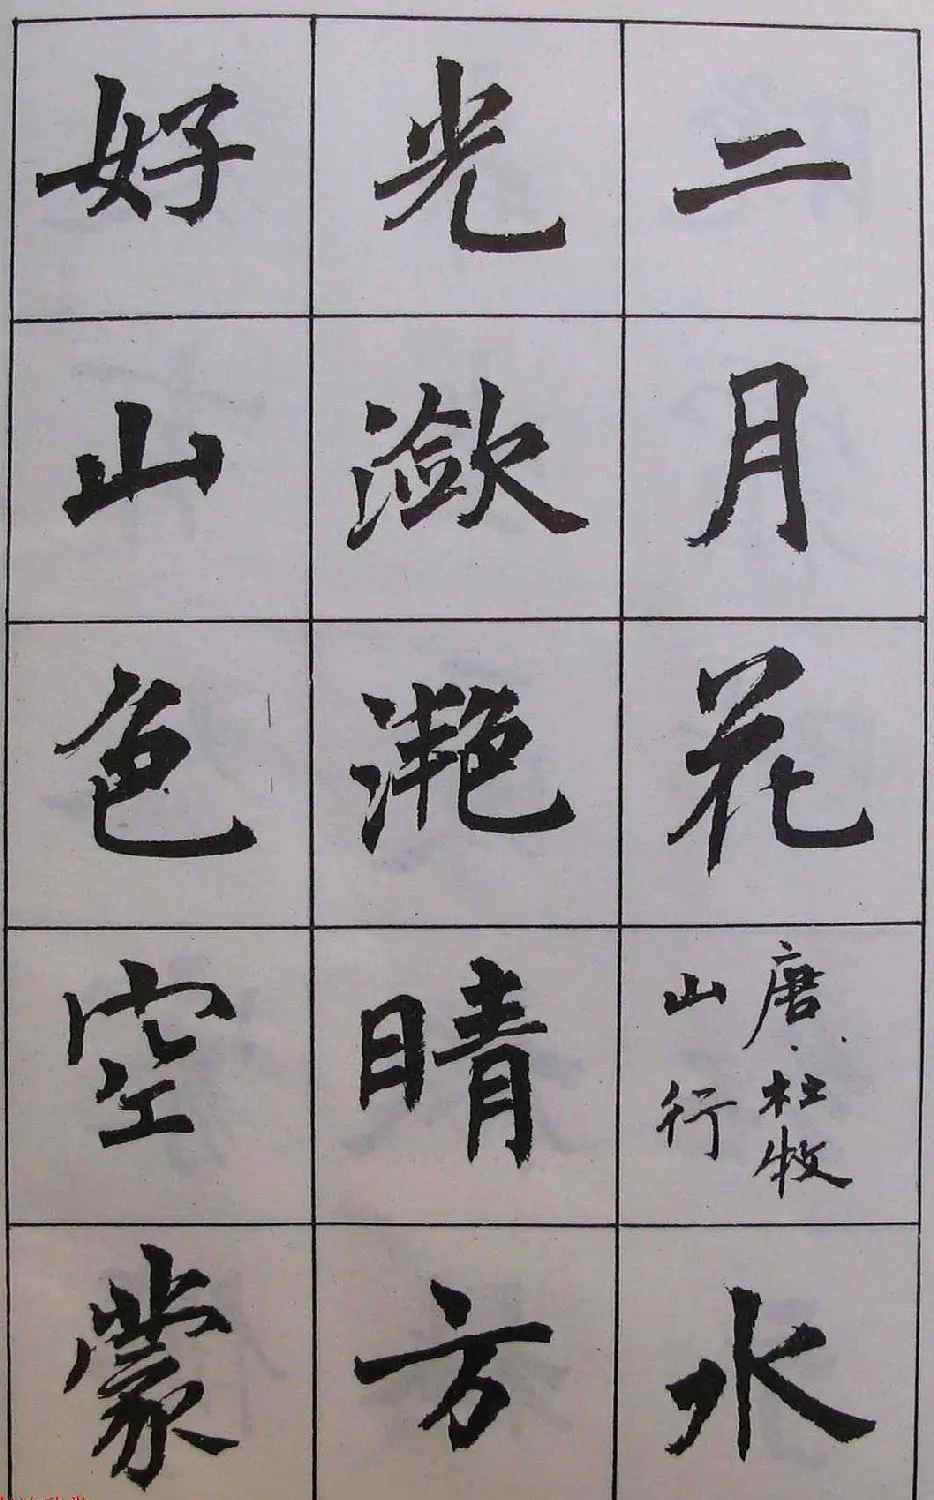 二月花
唐杜牧
山行
水
光潋滟晴方
好山色空蒙